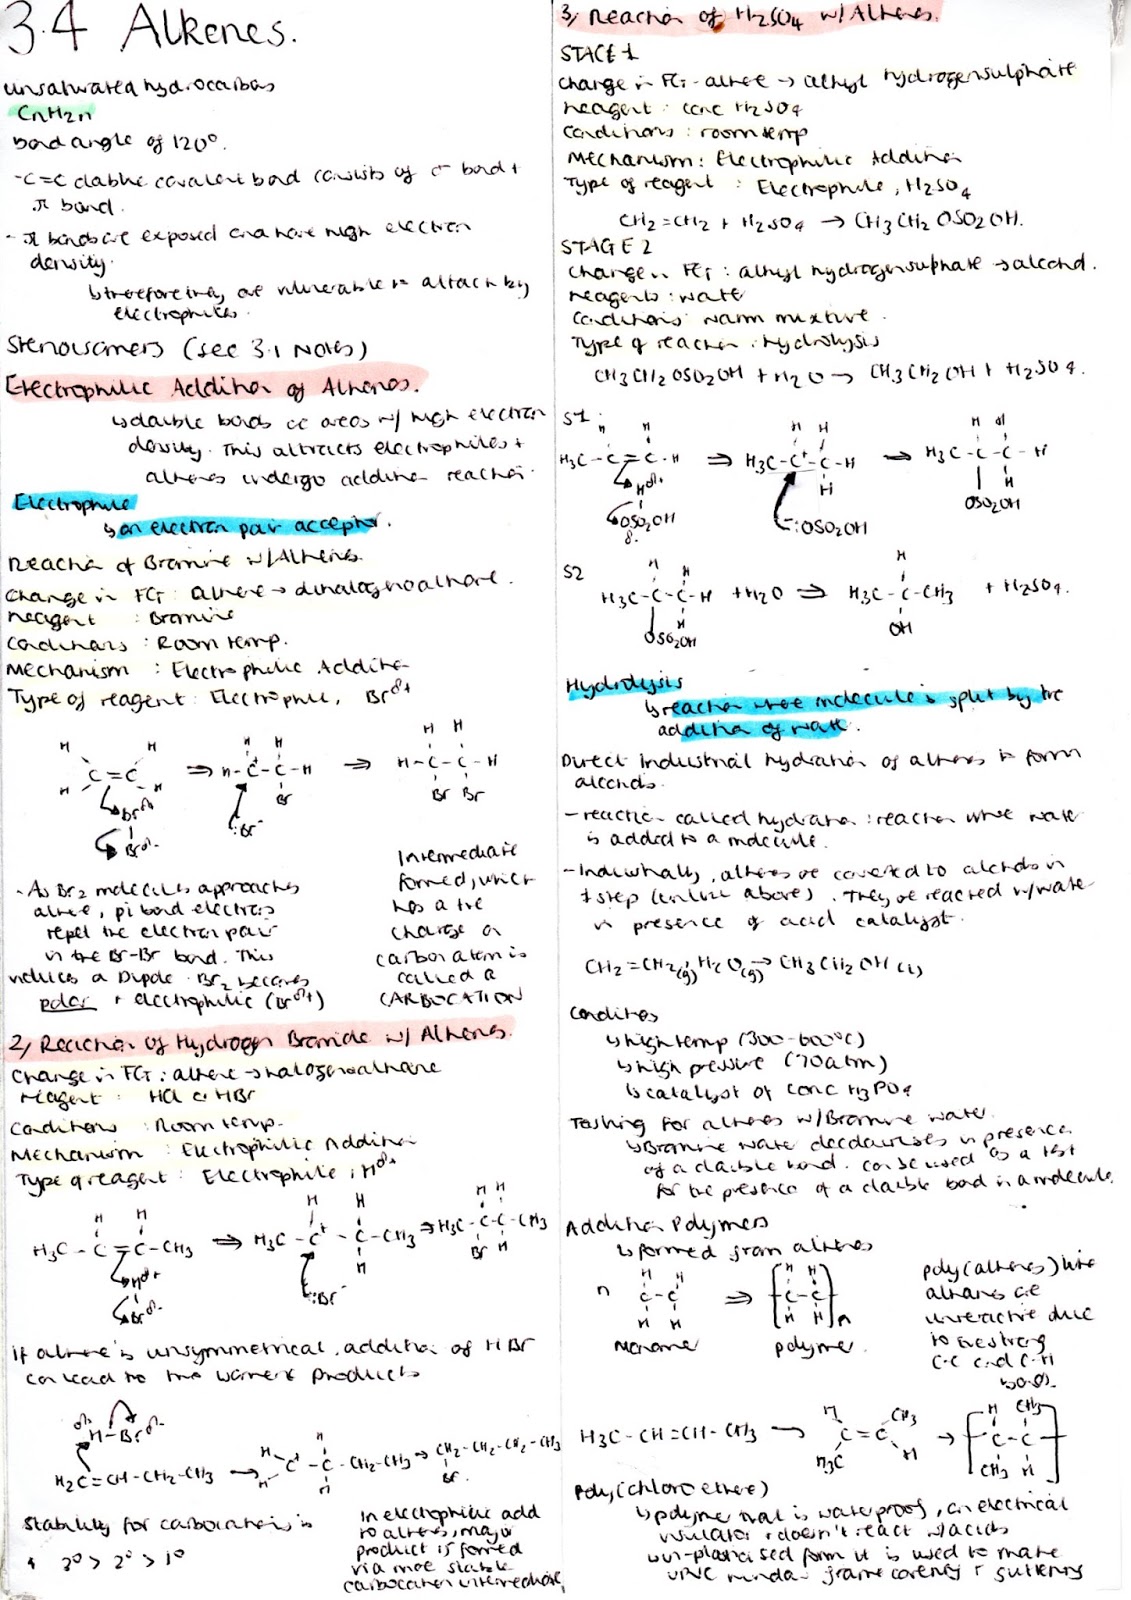 3.4 Alkenes.
unsaturated hydrocarbons
CnH2n
bond angle of 120°.
-C=C double covalent bond consists of σ bond +
π bond.
- π bonds are exposed and have high electron
density.
↳ therefore they are vulnerable to attack by
electrophiles.
Stereoisomers (see 3.1 Notes)
Electrophilic Addition of Alkenes.
↳ double bonds are areas w/ high electron
density. This attracts electrophiles +
alkenes undergo addition reaction.
Electrophile
↳ an electron pair acceptor.
Reaction of Bromine w/Alkenes.
Change in FG : alkene → dihalogenoalkane.
Reagent : Bromine
Conditions : Room temp.
Mechanism : Electrophilic Addition
Type of reagent : Electrophile, Brδ+
H H
C=C
H H
Brδ+
Brδ-
⇒
H H
H-C+-C-H
Br
:Br-
⇒
H H
H-C-C-H
Br Br
- As Br2 molecules approaches
alkene, pi bond electrons
repel the electron pair
in the Br-Br bond. This
induces a Dipole. Br2 becomes
polar + electrophilic (Brδ+)
Intermediate
formed, which
has a +ve
charge on
carbon atom is
called a
CARBOCATION
2, Reaction of Hydrogen Bromide w/ Alkenes.
Change in FG : alkene → halogenoalkane
Reagent : HCl or HBr
Conditions : Room temp.
Mechanism : Electrophilic Addition
Type of reagent : Electrophile, Hδ+
H H
H3C-C=C-CH3
Hδ+
Brδ-
⇒
H H
H3C-C+-C-CH3
H
:Br-
⇒
H H
H3C-C-C-CH3
Br H
if alkene is unsymmetrical, addition of HBr
can lead to two isomeric products
δ+ δ-
H-Br
H2C=CH-CH2-CH3
→
H H
C+-C-CH2-CH3
H H
→ CH2-CH2-CH2-CH3
Br.
Stability for carbocations is
3° > 2° > 1°
In electrophilic add
to alkenes, major
product is formed
via more stable
carbocation intermediate.
3, Reaction of H2SO4 w/ Alkenes.
STAGE 1
Change in FG - alkene → alkyl hydrogensulphate
Reagent : conc H2SO4
Conditions : room temp
Mechanism : Electrophilic Addition
Type of reagent : Electrophile, H2SO4
CH2=CH2 + H2SO4 → CH3CH2OSO2OH.
STAGE 2
Change in FG : alkyl hydrogensulphate → alcohol.
Reagents : water
Conditions : warm mixture.
Type of reaction : hydrolysis
CH3CH2OSO2OH + H2O → CH3CH2OH + H2SO4.
S1
H H
H3C-C=C-H
Hδ+
OSO2OH
δ-
⇒
H H
H3C-C+-C-H
H
-:OSO2OH
⇒
H H
H3C-C-C-H
H
OSO2OH
S2
H H
H3C-C-C-H + H2O ⇒
H
OSO2OH
H
H3C-C-CH3 + H2SO4.
OH
Hydrolysis
↳ reaction where molecule is split by the
addition of water.
Direct industrial hydration of alkenes to form
alcohols.
- reaction called hydration : reaction where water
is added to a molecule.
- Industrially, alkenes are converted to alcohols in
1 step (unlike above). They are reacted w/water
in presence of acid catalyst.
CH2=CH2(g) + H2O(g) → CH3CH2OH(l)
Conditions
↳ high temp (300-600°C)
↳ high pressure (70atm)
↳ catalyst of conc H3PO4
Testing for alkenes w/Bromine water.
↳ Bromine water decolourises in presence
of a double bond. can be used as a test
for the presence of a double bond in a molecule.
Addition Polymers
↳ formed from alkenes
H H
n C-C
H H
monomer
⇒
H H
[C-C]n
H H
polymer.
poly(alkenes) like
alkanes are
unreactive due
to the strong
C-C and C-H
bonds.
H3C-CH=CH-CH3 →
H CH3
C=C
H3C H
→
H CH3
[C-C]
CH3 H
Poly(chloroethene)
↳ polymer that is waterproof, an electrical
insulator + doesn't react w/acids
un-plasticised form it is used to make
uPVC window frame covering + guttering